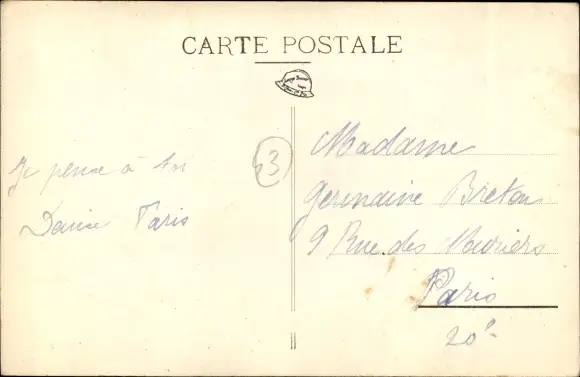 CARTE POSTALE
Je pense à toi
Denise Paris
53
Madame
Germaine Breton
9 Rue des Muriers
Paris
20e